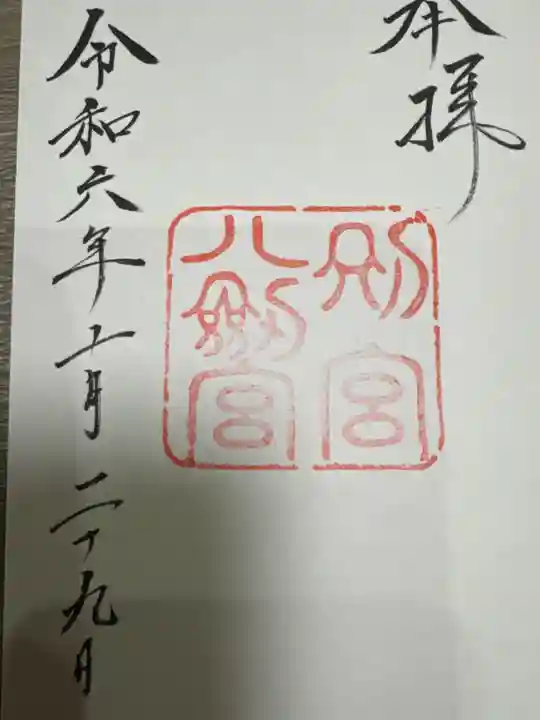 奉拝
別宮
八剣宮
令和六年十一月二十九日